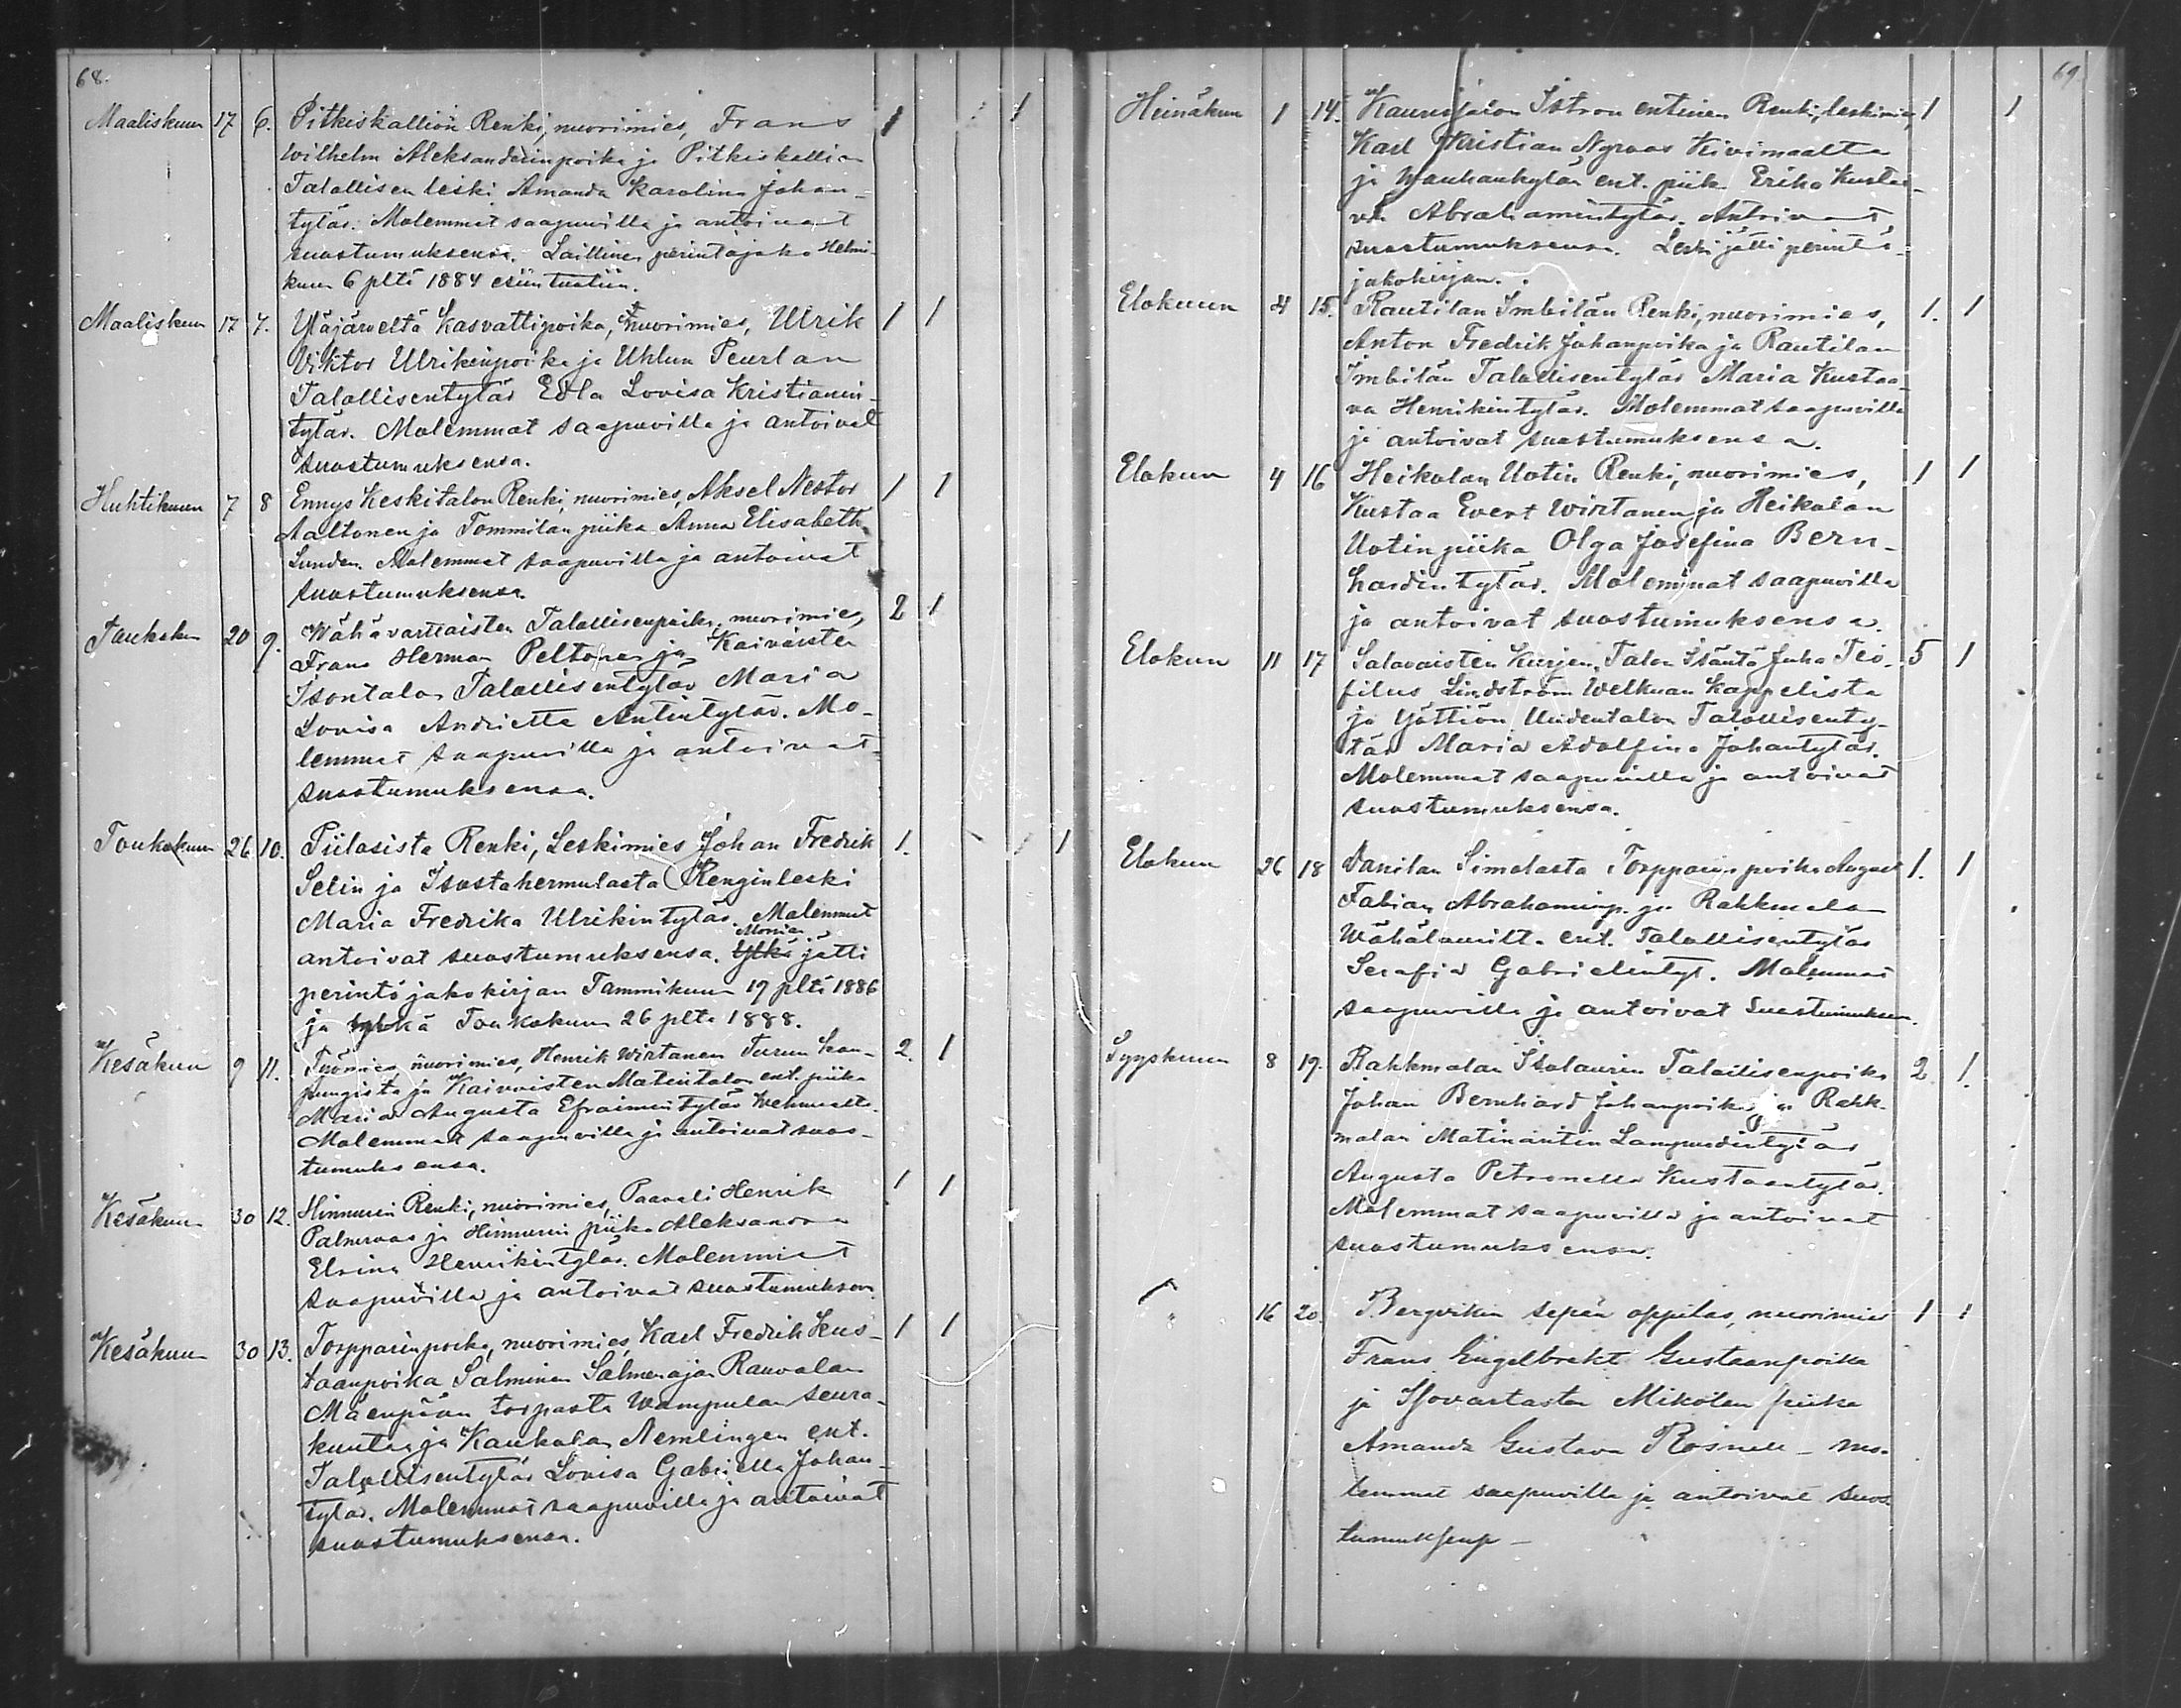 68.
Maaliskuun 17 6. Pitkiskallion Renki, nuorimies, Frans 1 1
Wilhelm Aleksanderinpoika ja Pitkiskallion
Talollisen leski Amanda Karolina Johan-
tytär. Molemmat saapuvilla ja antoivat
suostumuksensa. Laillinen perintöjako Helmi-
kuun 6 pltä 1884 esiintuotiin.
Maaliskuun 17 7. Yläjärveltä Kasvattipoika, nuorimies, Ulrik 1 1
Viktor Ulrikinpoika ja Uhlun Peurlan
Talollisentytär Edla Lovisa Kristianin-
tytär. Molemmat saapuvilla ja antoivat
suostumuksensa.
Huhtikuun 7 8 Ennys Keskitalon Renki, nuorimies, Aksel Nestor 1 1
Aaltonen ja Tommilan piika Anna Elisabeth
Sunden. Molemmat saapuvilla ja antoivat
suostumuksensa.
Toukokuun 20 9. Wähävartiaisten Talollisenpoika, nuorimies, 2 1
Frans Herman Peltonen ja Kaivaisten
Isontalon Talollisentytär Maria
Lovisa Andriette Antintytär. Mo-
lemmat saapuvilla ja antoivat
suostumuksensa.
Toukokuun 26 10. Piilasista Renki, Leskimies Johan Fredrik 1. 1 1
Selin ja Isostahermulasta Renginleski
Maria Fredrika Ulrikintytär. Molemmat
antoivat suostumuksensa. jätti
perintöjakokirjan Tammikuun 19 pltä 1886
ja Toukokuun 26 plta 1888.
Kesäkuun 9 11. Työmies, nuorimies, Henrik Wirtanen Turun kau- 2. 1
pungista ja Kaivaisten Matintalon ent. piika
Maria Augusta Efraimintytär Wehmaalta.
Molemmat saapuvilla ja antoivat suos-
tumuksensa.
Kesäkuun 30 12. Hinnurin Renki, nuorimies, Paavali Henrik 1 1
Palmroos ja Hinnurin piika Aleksandra
Elvina Henrikintytär. Molemmat
saapuvilla ja antoivat suostumuksen.
Kesäkuun 30 13. Torpparinpoika, nuorimies, Karl Fredrik Kus- 1 1
taanpoika Salminen Rauvalan
Mäenpään torpasta Wampulan seura-
kuntaa ja Kaukolan Nemlingen ent.
Talollisentytär Lovisa Gabriella Johan-
tytär. Molemmat saapuvilla ja antoivat
suostumuksensa.
69.
Heinäkuun 1 14. Istron entinen Renki, leskimies, 1 1
Karl Kristian Nyroos Kivimaalta
ja Wanhankylän ent. piika Erika Kusta-
va Abrahamintytär. Antoivat
suostumuksensa. Leski jätti perintö-
jakokirjan.
Elokuun 4 15. Rautilan Imbilän Renki, nuorimies, 1. 1
Anton Fredrik Johanpoika ja Rautilan
Imbilän Talollisentytär Maria Kustaa-
va Henrikintytär. Molemmat saapuvilla
ja antoivat suostumuksensa.
Elokuun 4 16 Heikolan Uotin Renki, nuorimies, 1 1
Kustaa Evert Wirtanen ja Heikolan
Uotin piika Olga Josefina Bern-
hardintytär. Molemmat saapuvilla
ja antoivat suostumuksensa.
Elokuun 11 17 Salavaisten Kurjen Talon Isäntä Juho Teo- 5 1
filus Lindström Welkuan Kappelista
ja Yöttiön Uudentalon Talollisenty-
tär Maria Adolfina Johantytär.
Molemmat saapuvilla ja antoivat
suostumuksensa.
Elokuun 26 18 Danilan Simolasta Torpparinpoika August 1. 1
Fabian Abrahaminp. ja Rahkmalan
Wähälaurilt. ent. Talollisentytär
Serafia Gabrielintyt. Molemmat
saapuvilla ja antoivat suostumuksen.
Syyskuun 8 19. Rahkmalan Isolaurin Talollisenpoika 2. 1.
Johan Bernhard Johanpoika ja Rahk-
malan Matinäntin Lampuodintytär
Augusta Petronella Kustaantytär.
Molemmat saapuvilla ja antoivat
suostumuksensa.
" 16 20. Bergvikin sepän oppilas, nuorimies 1 1
Frans Engelbrekt Gustaanpoika
ja Isovartasten Mikolan piika
Amanda Gustava Rosnell - mo-
lemmat saapuvilla ja antoivat suos-